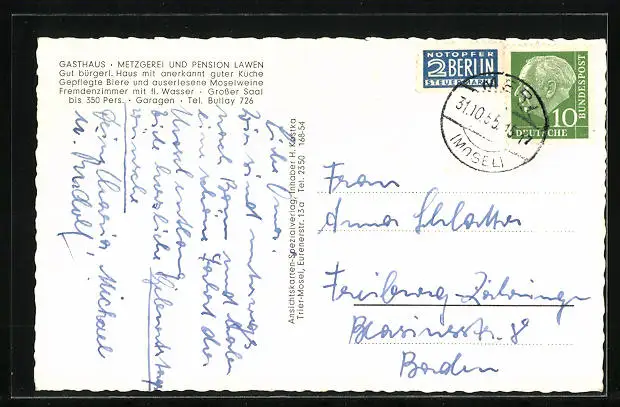 GASTHAUS · METZGEREI UND PENSION LAWEN
Gut bürgerl. Haus mit anerkannt guter Küche
Gepflegte Biere und auserlesene Moselweine
Fremdenzimmer mit fl. Wasser · Großer Saal
bis 350 Pers. · Garagen · Tel. Bullay 726
NOTOPFER
2 BERLIN
STEUERMARKE
31.10.55.
(MOSEL)
10
DEUTSCHE
BUNDESPOST
Ansichtskarten-Spezialverlag, Inhaber H. Kostka
Trier-Mosel, Eurenerstr. 13a Tel. 2350 168-54
Liebe Oma!
Wir sind unterwegs
nach Bonn und haben
eine schöne Fahrt der
Mosel entlang
Viele herzliche
wünsche
Michael
u. Rudolf!
Frau
Anna Schlatter
Freiburg-Zähringen
Blasiusstr. 8
Baden